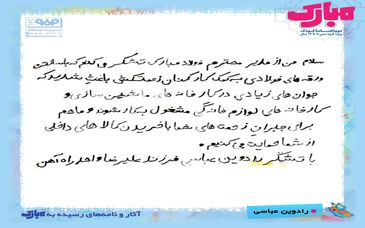 مبارک
سلام من از مدیر محترم فولاد مبارکه تشکر می کنم که با ساختن
ورقه های فولادی به کمک کارکنان زحمتکش باعث شدید که
جوان های زیادی در کارخانه های ماشین سازی و
کارخانه های لوازم خانگی مشغول به کار شوند و ما هم
برای جبران زحمت های شما با خرید از کالا های داخلی
از شما حمایت می کنیم.
با تشکر رادوین عباسی فرزند علیرضا واحد راه آهن
رادوین عباسی
آثار و نامه‌های رسیده به مبارک